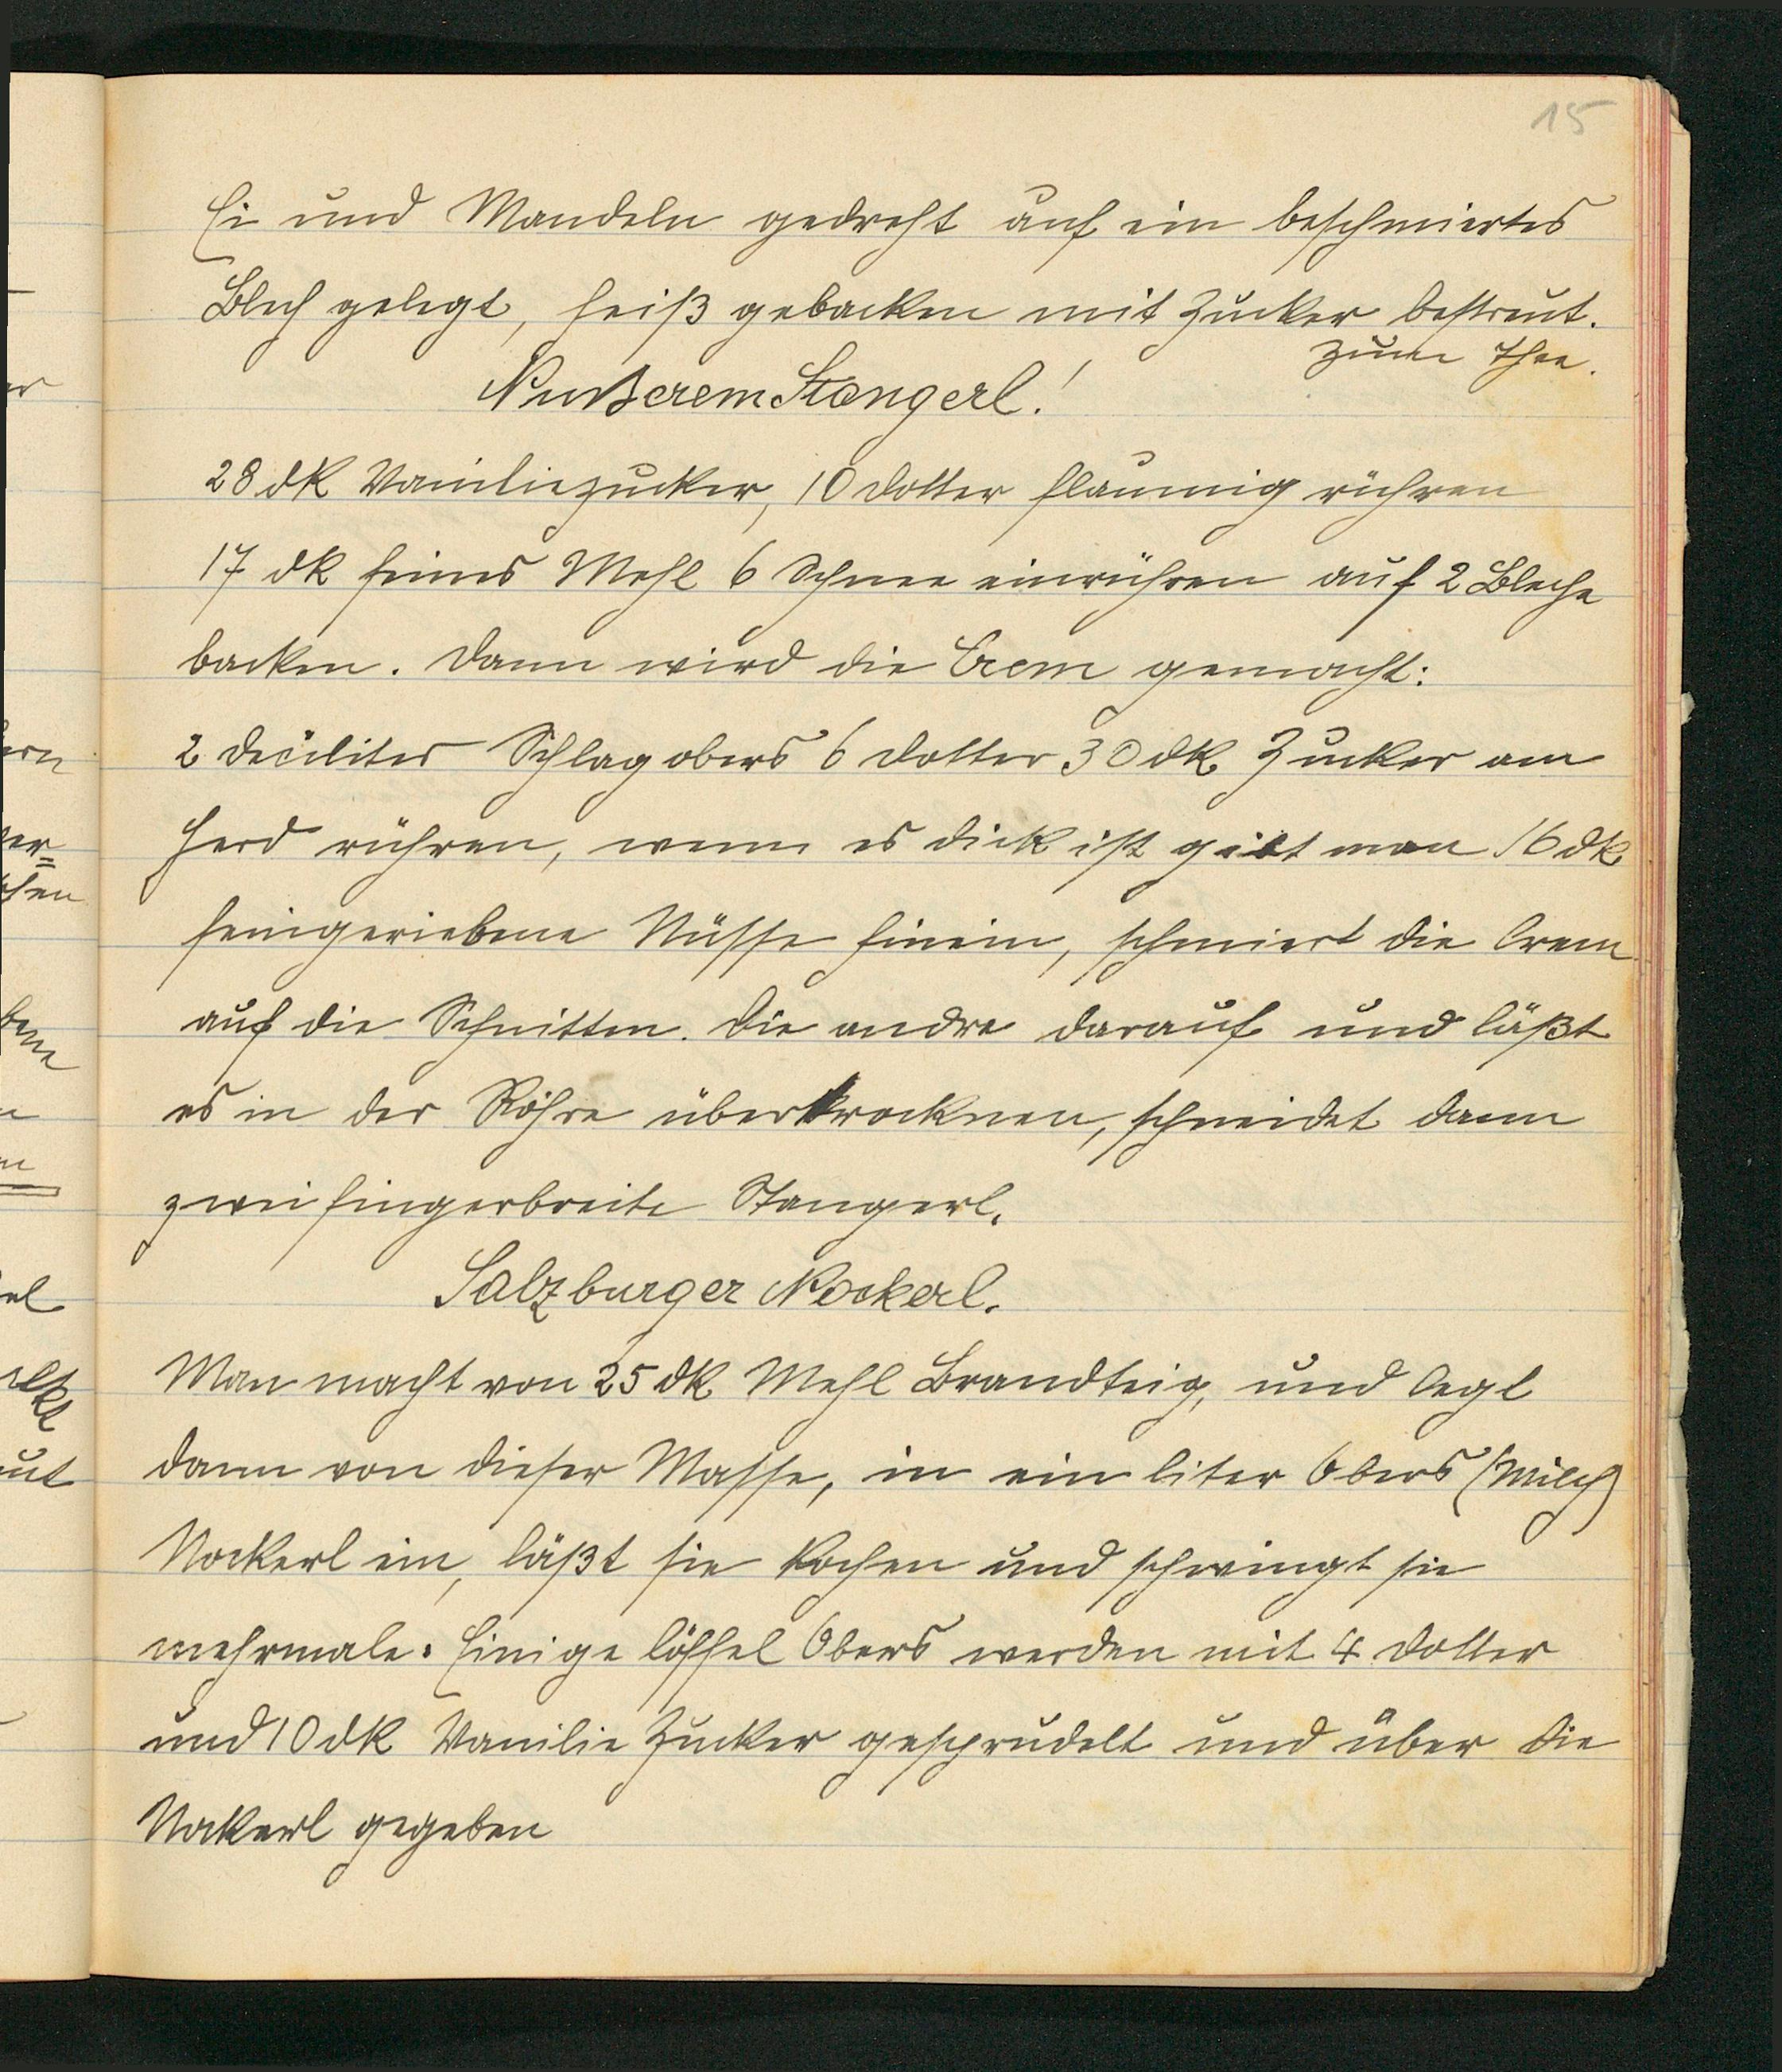 15
Ei und Mandeln gedreht auf ein beschmiertes
Blech gelegt, heiß gebacken mit Zucker bestreut.
zum Thee.
Nußcrem Stangerl!
28 dk Vaniliezucker, 10 Dotter flaumig rühren
17 dk feines Mehl 6 Schnee einrühren auf 2 Bleche
backen. Dann wird die Crem gemacht:
2 Deciliter Schlagobers 6 Dotter 30 dk Zucker am
Herd rühren, wenn es dick ist gibt man 16 dk
feingeriebene Nüsse hinein, schmiert die Crem
auf die Schnitten. Die andre darauf und läßt
es in der Röhre übertrocknen, schneidet dann
zweifingerbreite Stangerl.
Salzburger Nockerl.
Man macht von 25 dk Mehl Brandteig, und legt
dann von dieser Masse, in ein Liter Obers (Milch)
Nockerl ein, läßt sie kochen und schwingt sie
mehrmale. Einige Löffel Obers werden mit 4 Dotter
und 10 dk Vanilie Zucker gesprudelt und über die
Nockerl gegeben